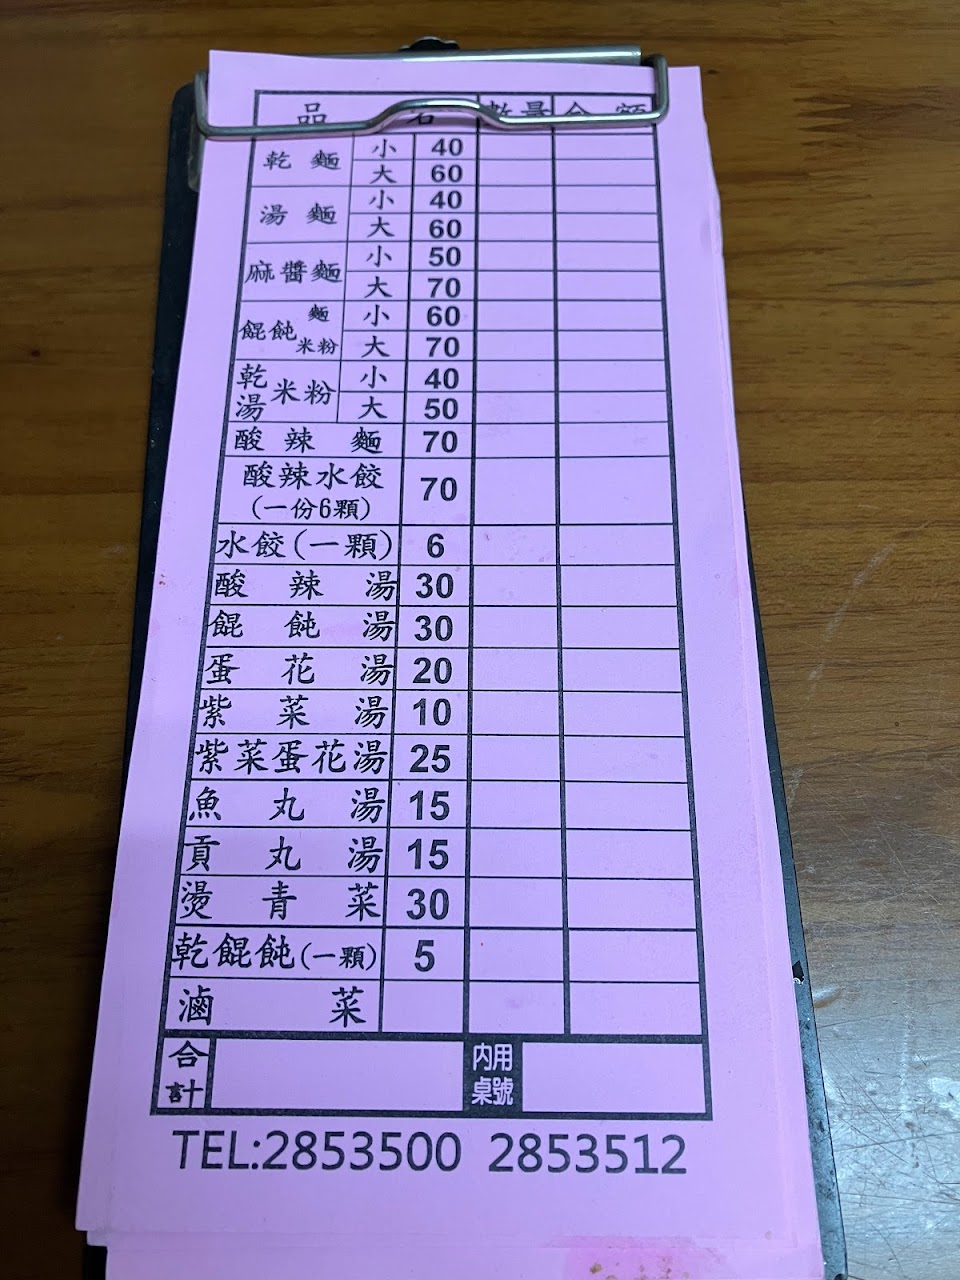 品 名 數量 金 額
乾 麵 小 40
大 60
湯 麵 小 40
大 60
麻醬麵 小 50
大 70
餛飩 麵 米粉 小 60
大 70
乾 湯 米粉 小 40
大 50
酸 辣 麵 70
酸辣水餃 (一份6顆) 70
水餃(一顆) 6
酸 辣 湯 30
餛 飩 湯 30
蛋 花 湯 20
紫 菜 湯 10
紫菜蛋花湯 25
魚 丸 湯 15
貢 丸 湯 15
燙 青 菜 30
乾餛飩(一顆) 5
滷 菜
合計 內用桌號
TEL:2853500 2853512